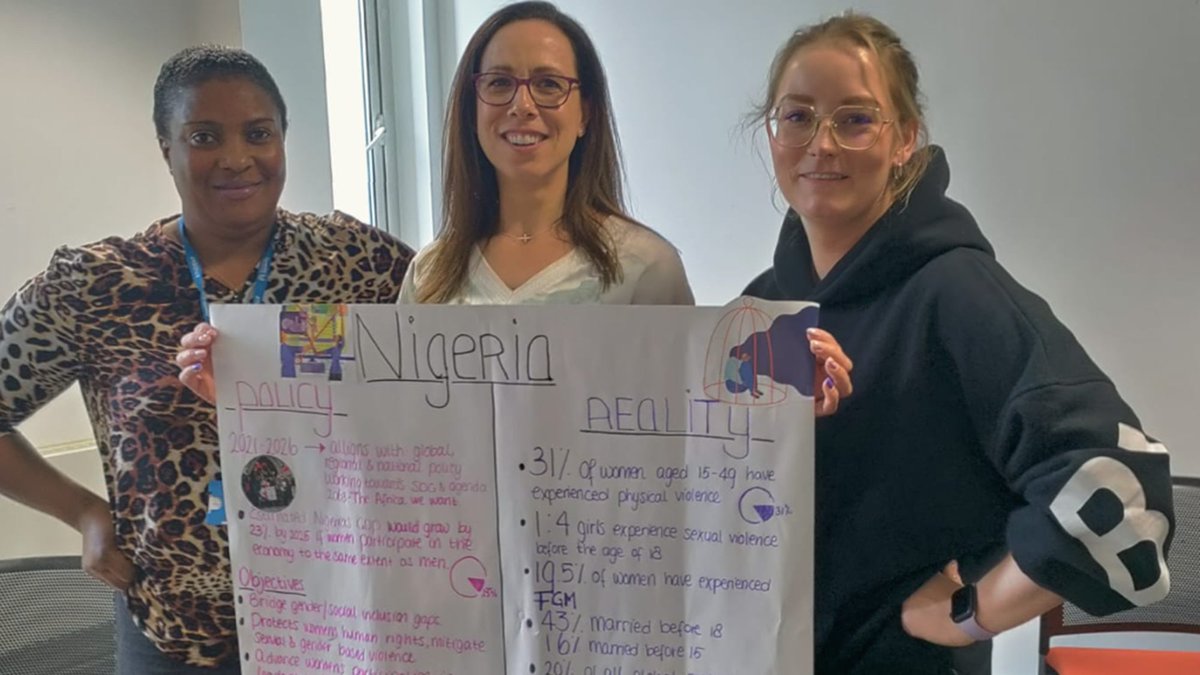 Nigeria
Policy
2021-2026 → allions with global,
regional & national policy
working towards SDG & agenda
2063-The Africa we want
• Estimated Nigeria's GDP would grow by
23% by 2025 if women participate in the
economy to the same extent as men.
23%
Objectives
• Bridge gender/social inclusion gaps.
• Protects womens human rights, mitigate
sexual & gender based violence
• Advance women's
REALITY
• 31% of women aged 15-49 have
experienced physical violence
31%
• 1:4 girls experience sexual violence
before the age of 18
• 19.5% of women have experienced
FGM
• 43% married before 18
16% married before 15
• 20% of all global
B